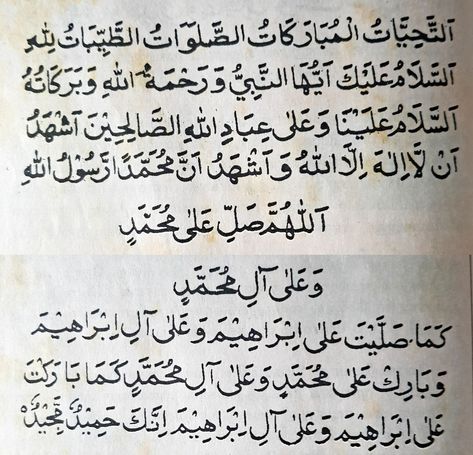 اَلتَّحِيَّاتُ الْمُبَارَكَاتُ الصَّلَوَاتُ الطَّيِّبَاتُ لِلّٰهِ
اَلسَّلَامُ عَلَيْكَ اَيُّهَا النَّبِيُّ وَرَحْمَةُ اللهِ وَبَرَكَاتُهُ
اَلسَّلَامُ عَلَيْنَا وَعَلٰى عِبَادِ اللهِ الصَّالِحِيْنَ اَشْهَدُ
اَنْ لَا اِلٰهَ اِلَّا اللهُ وَاَشْهَدُ اَنَّ مُحَمَّدًا رَسُوْلُ اللهِ
اَللّٰهُمَّ صَلِّ عَلٰى مُحَمَّدٍ
وَعَلٰى آلِ مُحَمَّدٍ
كَمَا صَلَّيْتَ عَلٰى اِبْرَاهِيْمَ وَعَلٰى آلِ اِبْرَاهِيْمَ
وَبَارِكْ عَلٰى مُحَمَّدٍ وَعَلٰى آلِ مُحَمَّدٍ كَمَا بَارَكْتَ
عَلٰى اِبْرَاهِيْمَ وَعَلٰى آلِ اِبْرَاهِيْمَ اِنَّكَ حَمِيْدٌ مَّجِيْدٌ